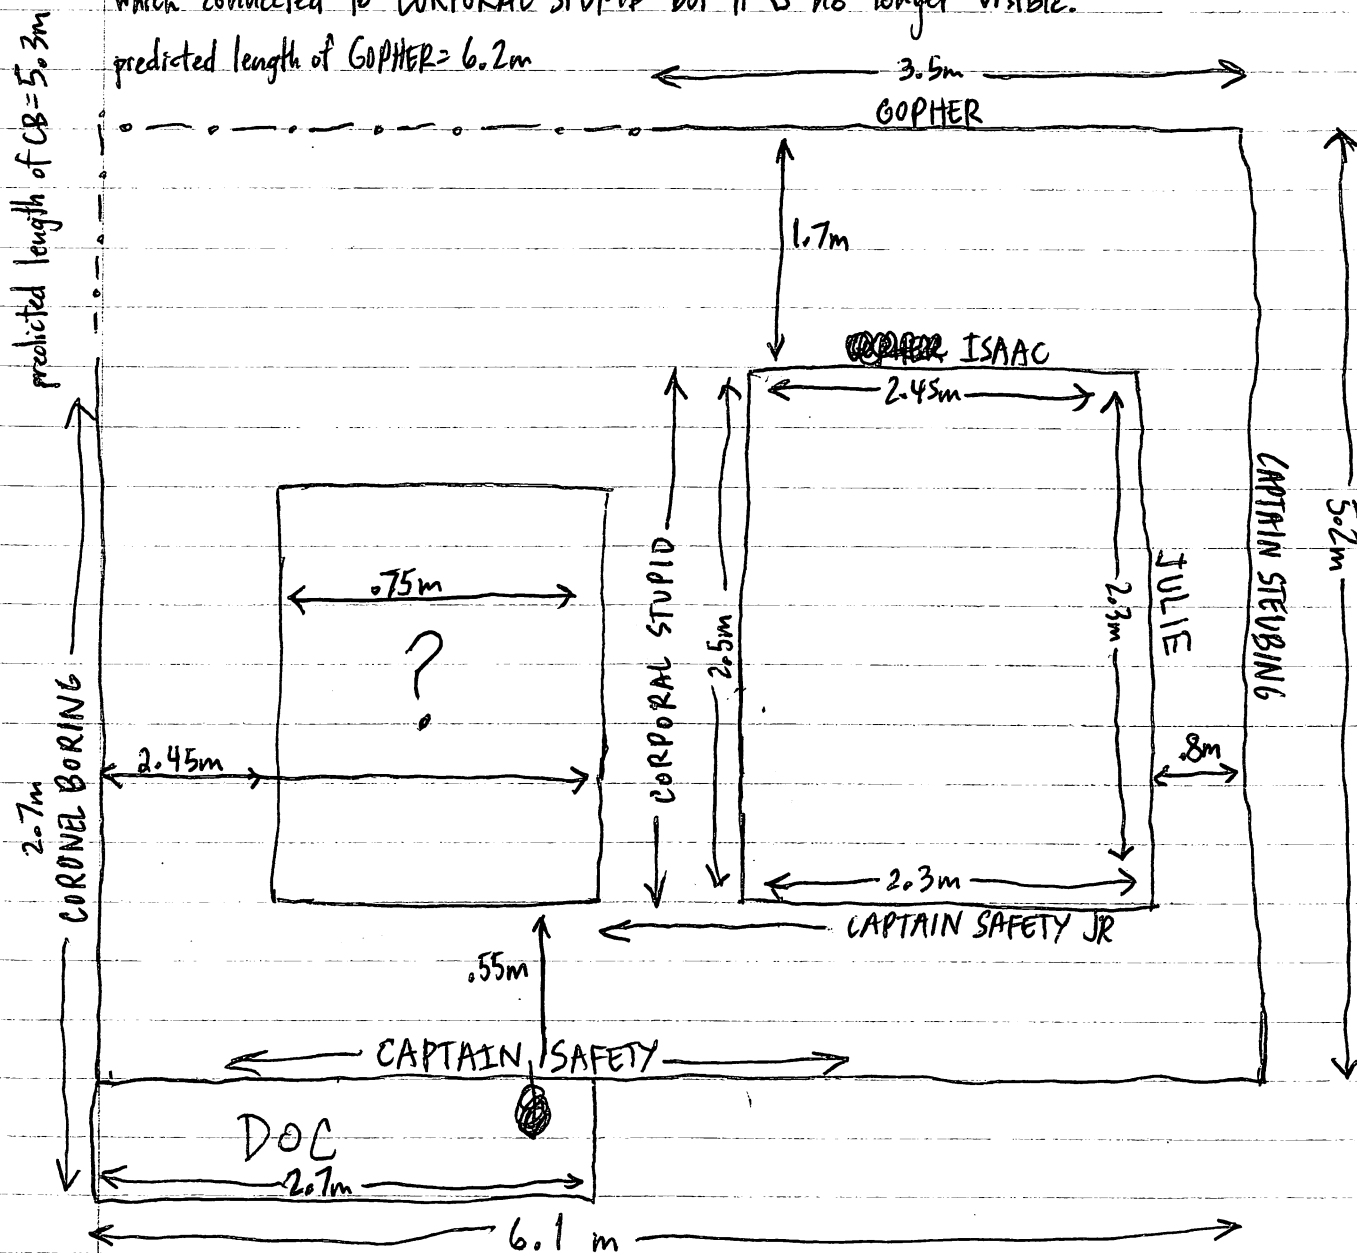 which connected to CORPORAL STUPID but it is no longer visible.
predicted length of GOPHER = 6.2m
predicted length of CB = 5.3m
3.5m
GOPHER
1.7m
ISAAC
2.45m
5.2m
CAPTAIN STEUBING
JULIE
2.3m
2.5m
CORPORAL STUPID
.75m
?
2.45m
.8m
2.7m
CORONEL BORING
2.3m
CAPTAIN SAFETY JR
.55m
CAPTAIN SAFETY
DOC
2.7m
6.1 m